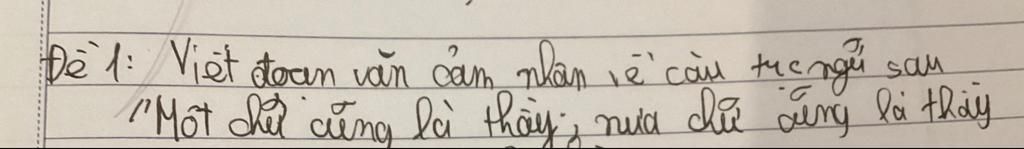 Đề 1: Viết đoạn văn cảm nhận về câu tục ngữ sau
"Một chữ cũng là thầy, nửa chữ cũng là thầy